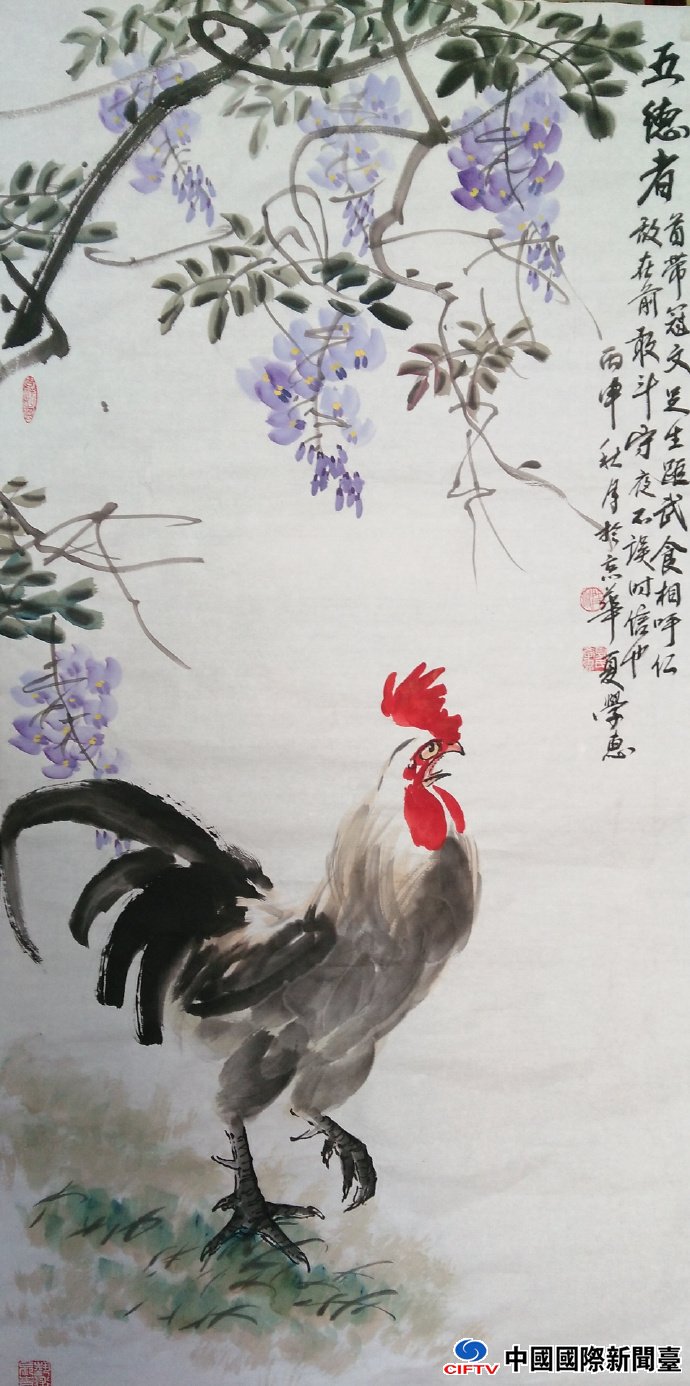 五德者
首带冠文足生距武食相呼仁
敌在前敢斗守夜不误时信也
丙申秋月於京華夏學惠
CIFTV
中國國際新聞臺